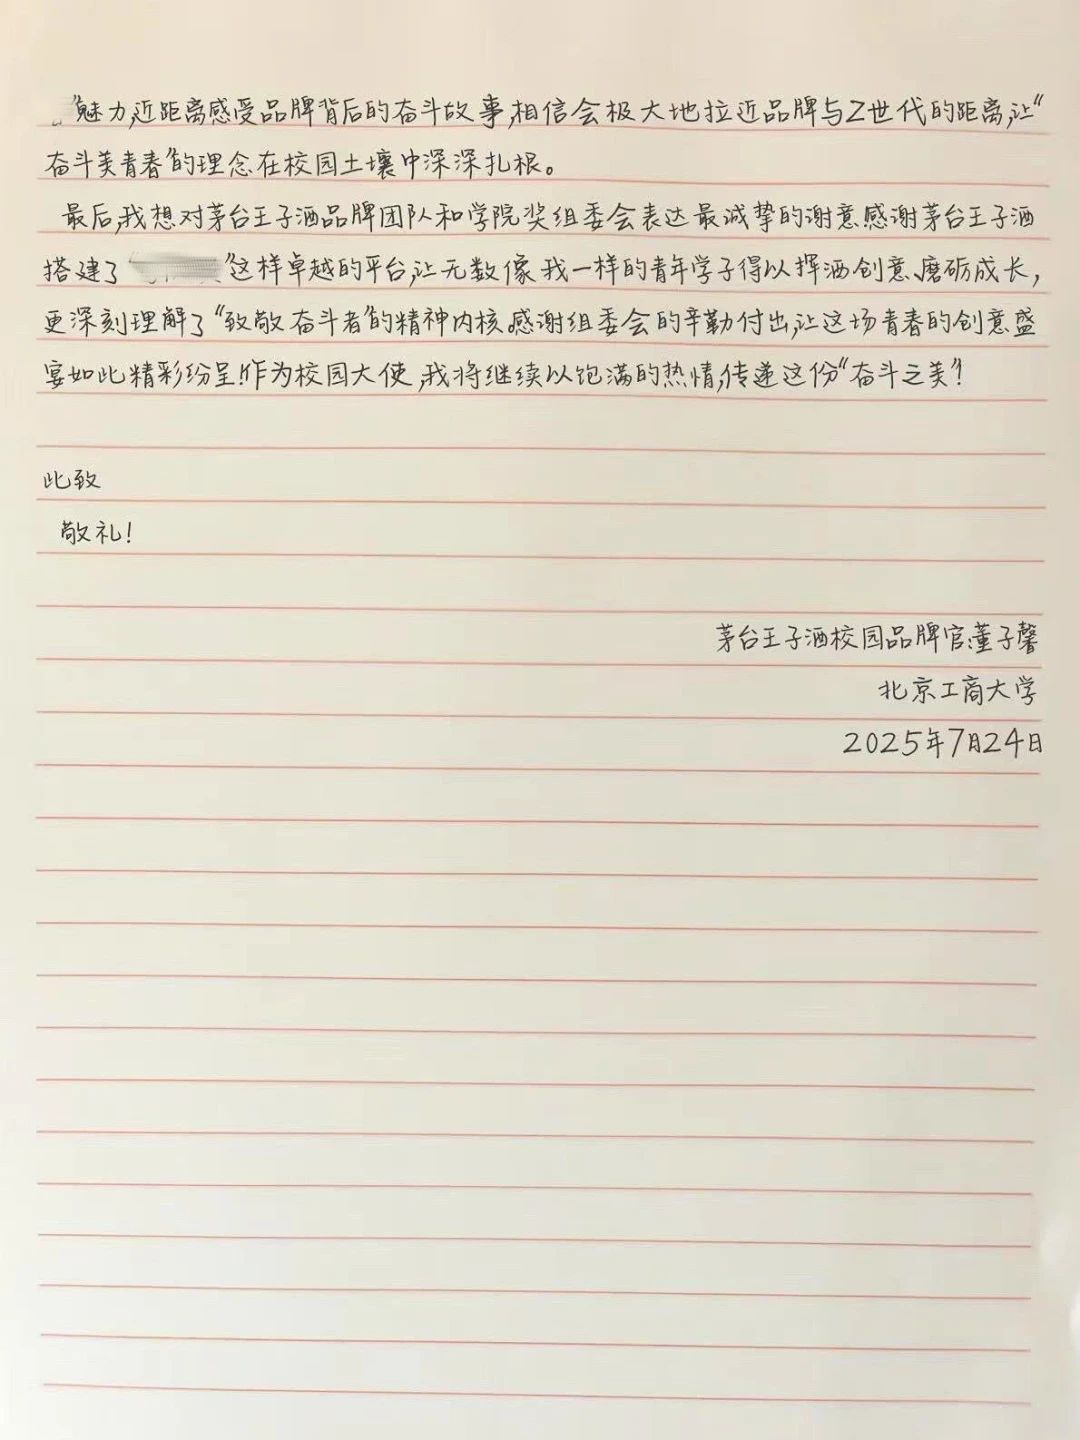 ”魅力,近距离感受品牌背后的奋斗故事,相信会极大地拉近品牌与Z世代的距离,让“
奋斗美青春”的理念在校园土壤中深深扎根。
最后,我想对茅台王子酒品牌团队和学院奖组委会表达最诚挚的谢意.感谢茅台王子酒
搭建了“”这样卓越的平台,让无数像我一样的青年学子得以挥洒创意、磨砺成长,
更深刻理解了“致敬奋斗者”的精神内核.感谢组委会的辛勤付出,让这场青春的创意盛
宴如此精彩纷呈!作为校园大使,我将继续以饱满的热情,传递这份“奋斗之美”!
此致
敬礼!
茅台王子酒校园品牌官:董子馨
北京工商大学
2025年7月24日